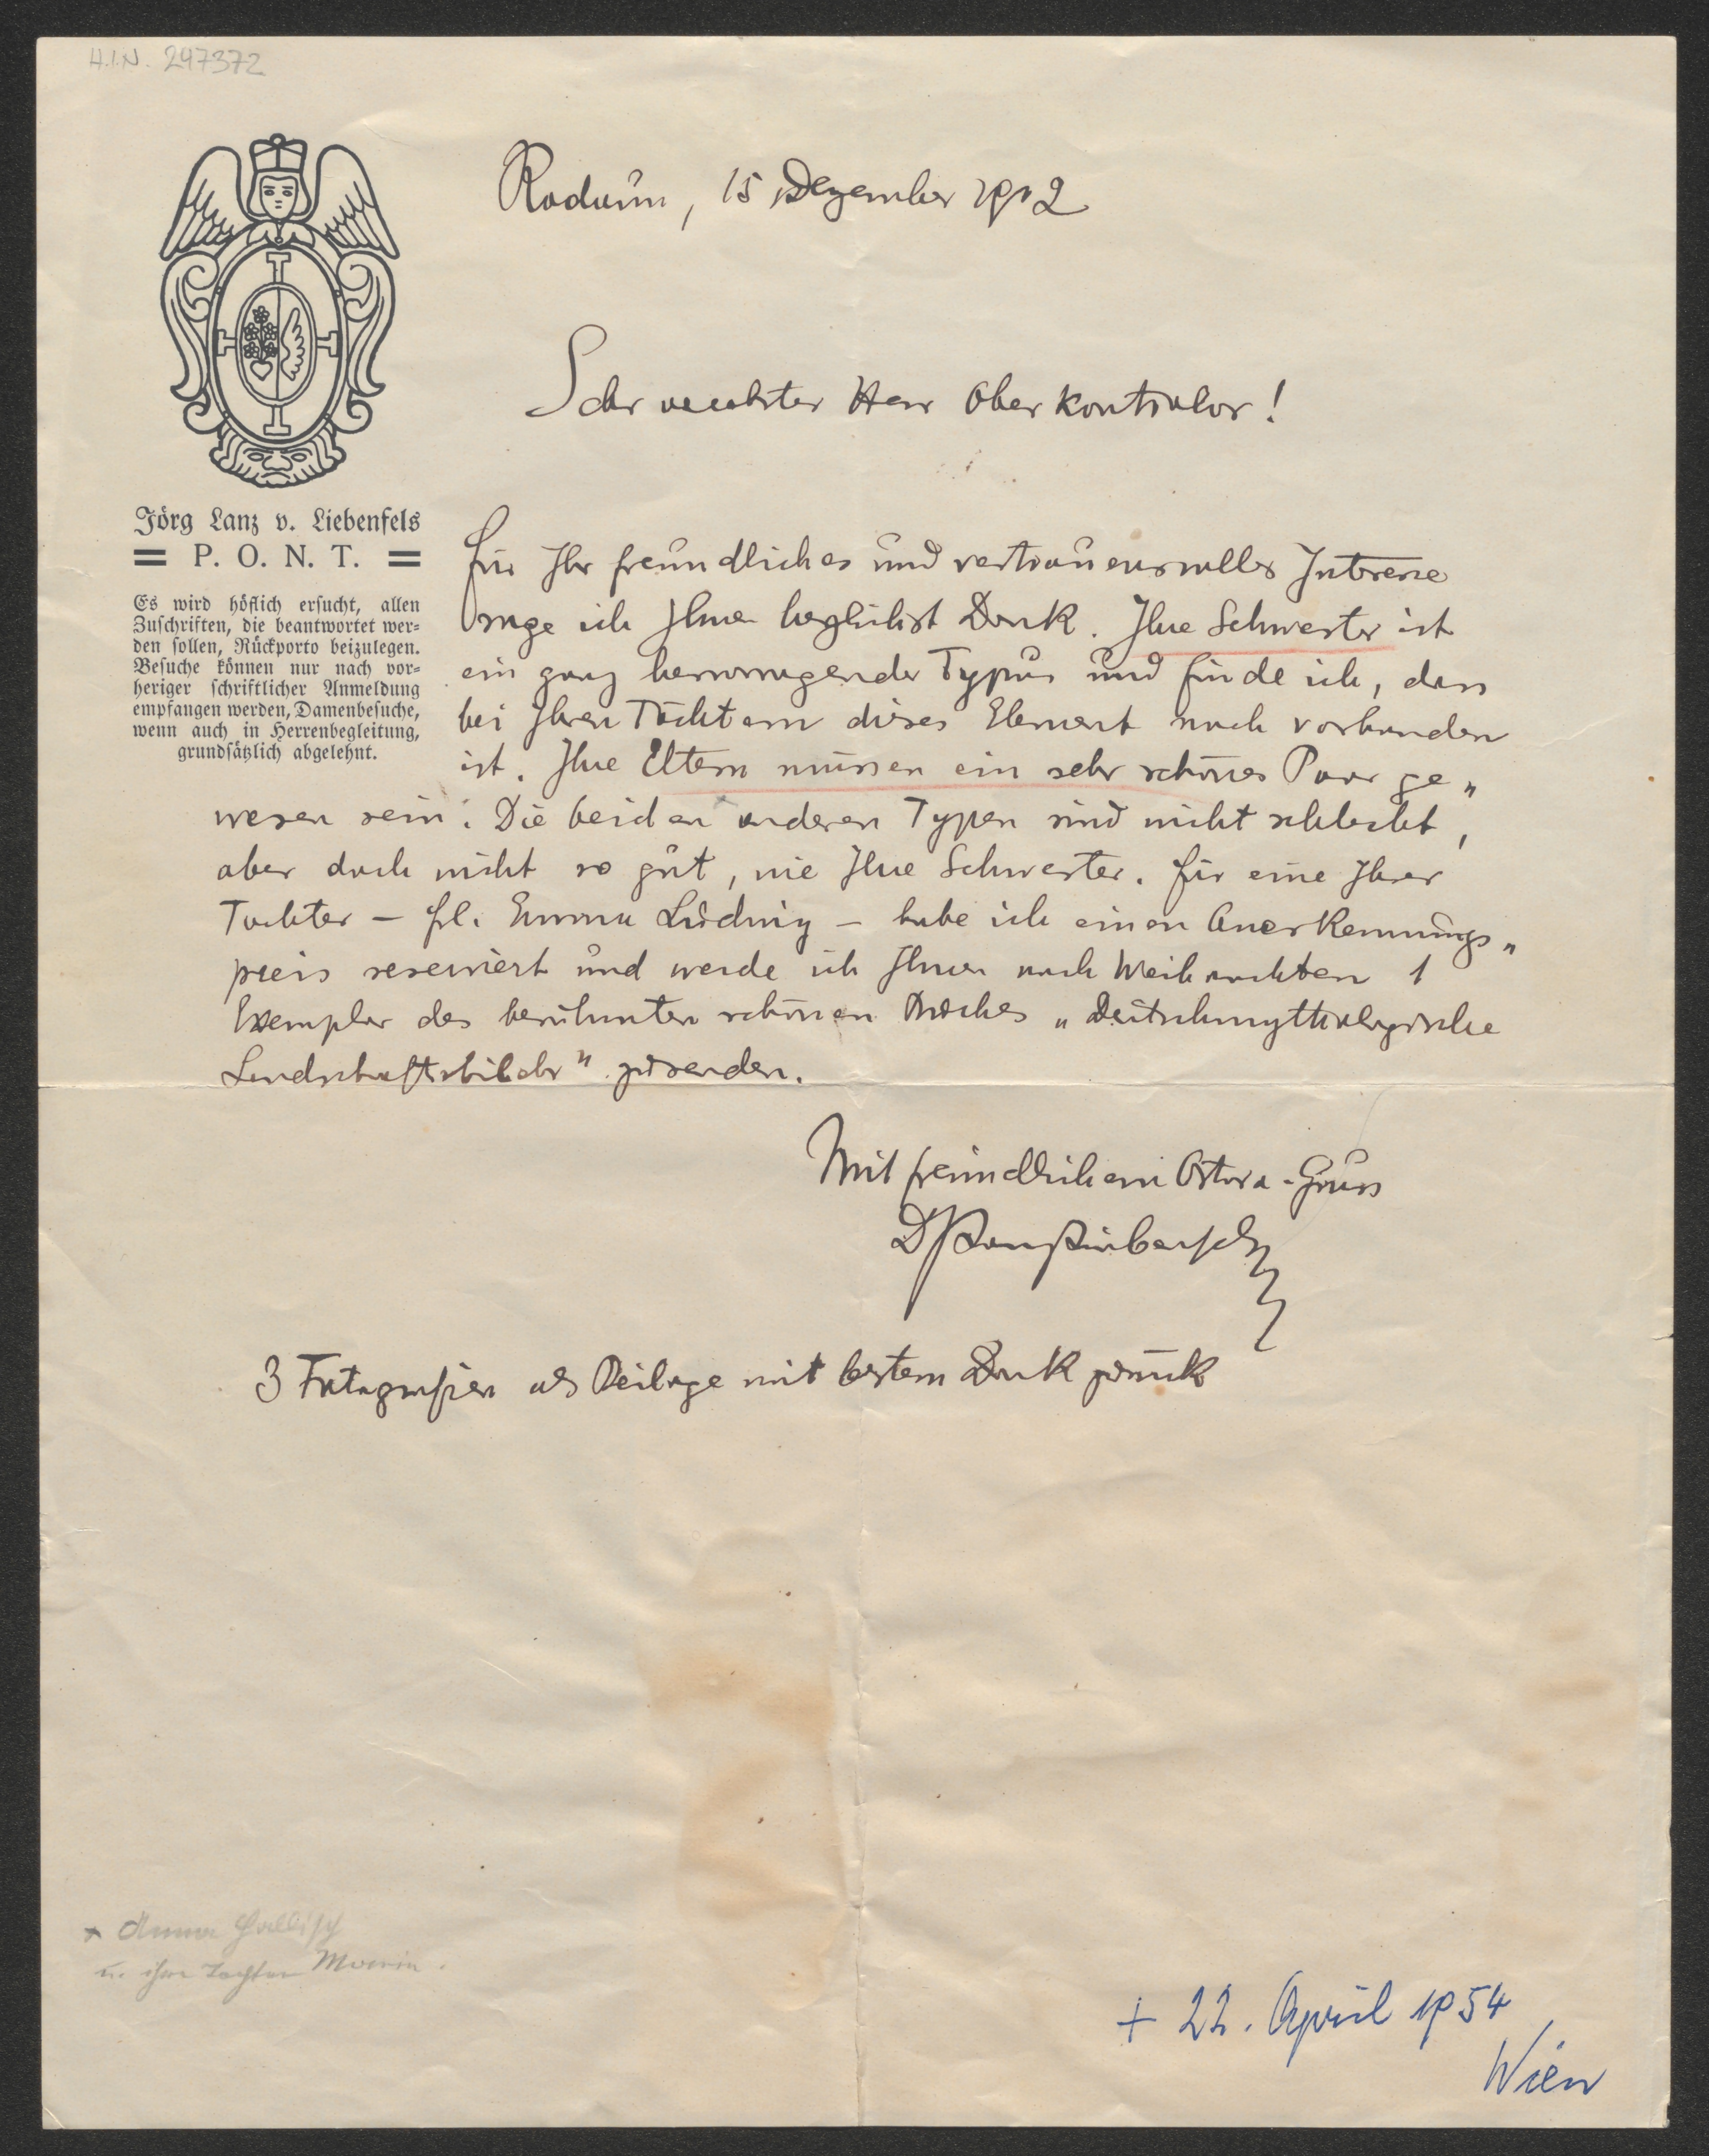 H.I.N. 247372
Rodaun, 15 Dezember 1912
Sehr verehrter Herr Oberkontrolor!
Jörg Lanz v. Liebenfels
= P. O. N. T. =
Es wird höflich ersucht, allen
Zuschriften, die beantwortet wer-
den sollen, Rückporto beizulegen.
Besuche können nur nach vor-
heriger schriftlicher Anmeldung
empfangen werden, Damenbesuche,
wenn auch in Herrenbegleitung,
grundsätzlich abgelehnt.
Für Ihr freundliches und vertrauensvolles Interesse
sage ich Ihnen herzlichst Dank. Ihre Schwester ist
ein ganz hervorragender Typus und finde ich, dass
bei Ihren Töchtern dieses Element noch vorhanden
ist. Ihre Eltern müssen ein sehr schönes Paar ge„
wesen sein! Die beiden anderen Typen sind nicht schlecht,
aber doch nicht so gut, wie Ihre Schwester. Für eine Ihrer
Tochter – Frl. Emma Ludwig – habe ich einen Anerkennungs„
preis reserviert und werde ich Ihnen nach Weihnachten 1
Exemplar des berühmten schönen Buches „Deutschmythologische
Landschaftsbilder" zusenden.
Mit freundlichem Ostara-Gruss
3 Fotografien als Beilage mit bestem Dank zurück
* Anna
u. ihre Tochter
+ 22. April 1954
Wien